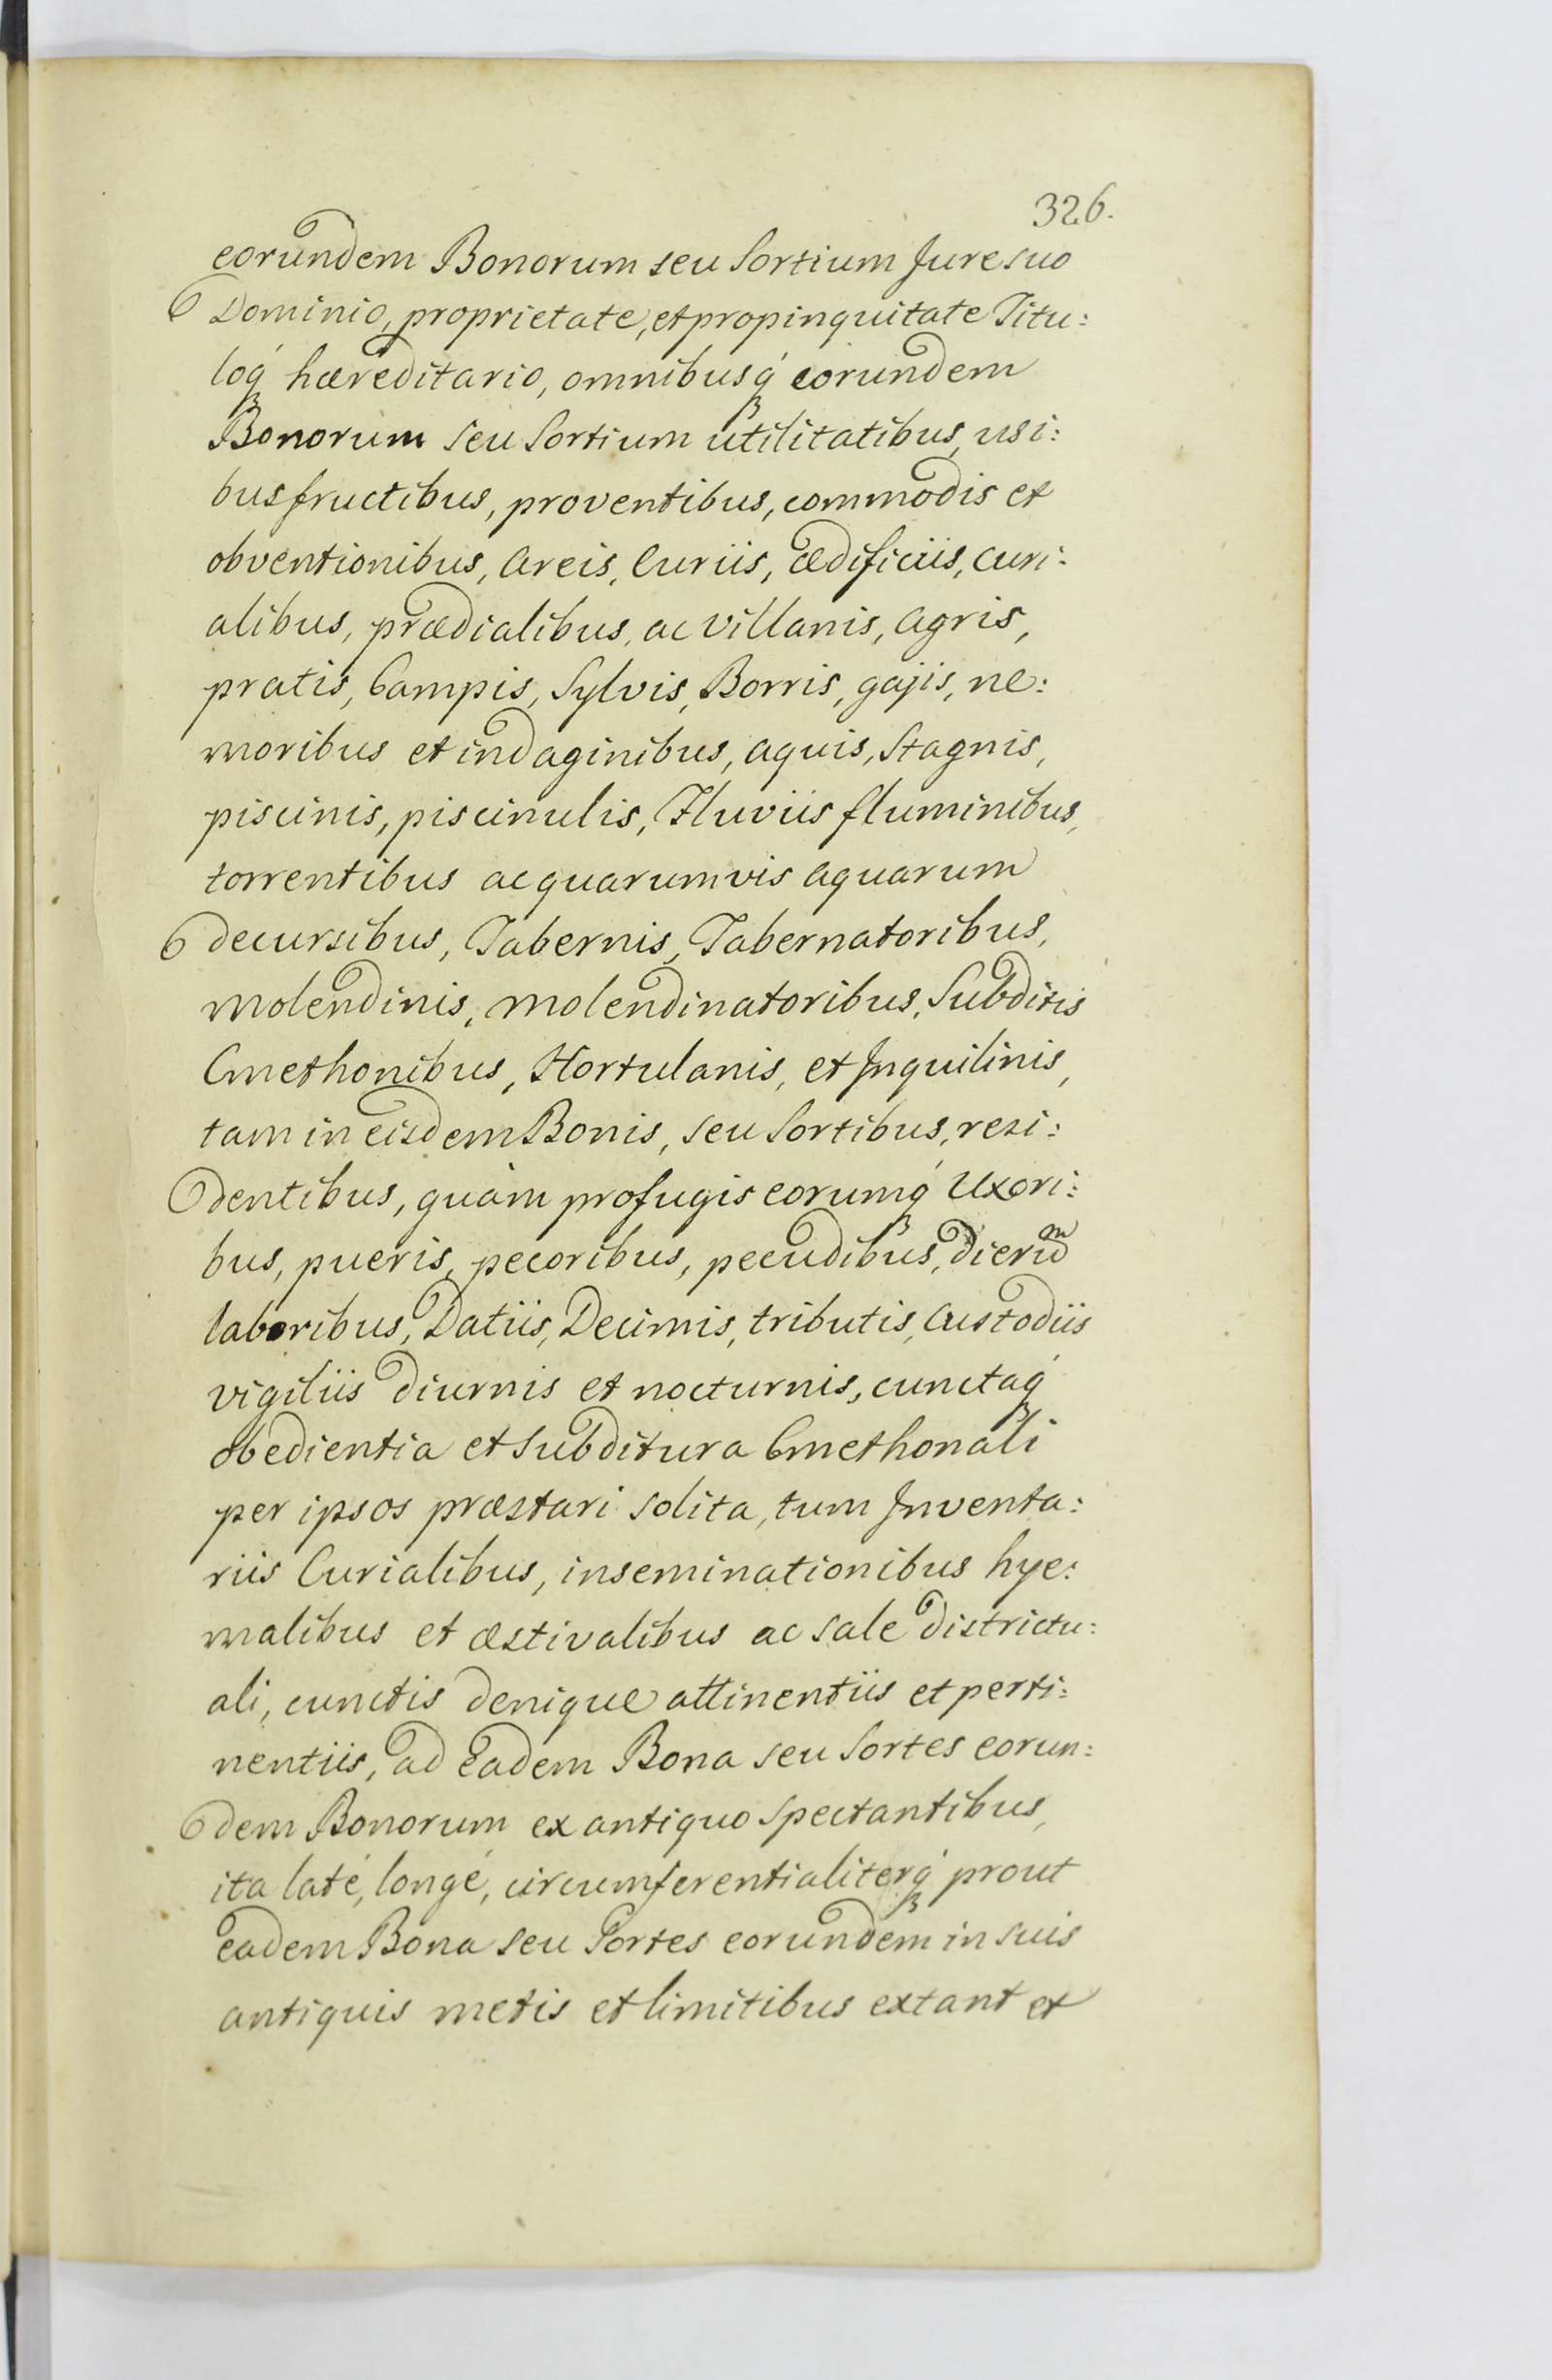 326.
eorundem Bonorum seu Sortium Jure suo
Dominio, proprietate, et propinquitate Titu:
loq́ꝫ hæreditario, omnibusq́ꝫ eorundem
Bonorum seu Sortium utilitatibus, usi:
busfructibus, proventibus, commodis et
obventionibus, areis, Curiis, ædificiis, curi:
alibus, prædialibus, ac villanis, agris,
pratis, Campis, Sylvis, Borris, gajis, ne:
moribus et indaginibus, aquis, Stagnis,
piscinis, piscinulis, Fluviis fluminibus,
torrentibus ac quarumvis aquarum
decursibus, Tabernis, Tabernatoribus,
molendinis, molendinatoribus, Subditis
Cmethonibus, Hortulanis, et Inquilinis,
tam in eisdem Bonis, seu Sortibus, resi:
dentibus, quàm profugis eorumq́ꝫ Uxori:
bus, pueris, pecoribus, pecudibus, dierũm
laboribus, Datiis, Decimis, tributis, Custodiis
vigiliis diurnis et nocturnis, cunctaq́ꝫ
obedientia et subditura Cmethonali
per ipsos præstari solita, tum Inventa:
riis Curialibus, inseminationibus hye:
malibus et æstivalibus ac sale districtu:
ali, cunctis denique attinentiis et perti:
nentiis, ad eadem Bona seu Sortes eorun:
dem Bonorum ex antiquo Spectantibus,
ita laté, longé, circumferentialiterq́ꝫ prout
eadem Bona seu Sortes eorundem in suis
antiquis metis et limitibus extant et